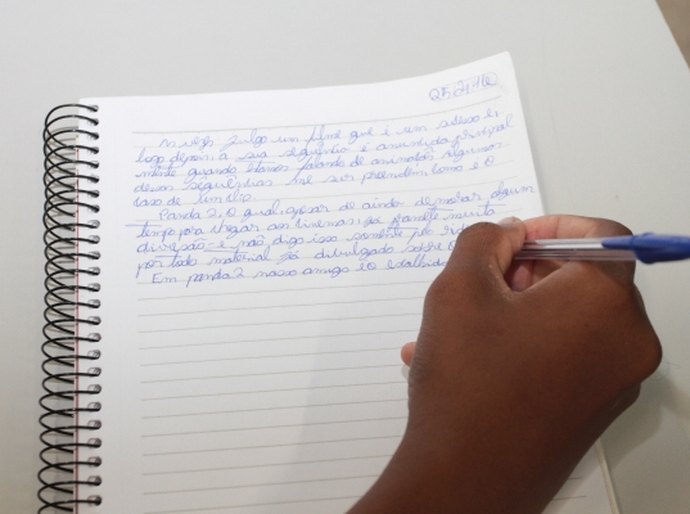 25.4.16
As vezes julgo um filme que é um sucesso e
logo depois a sua sequência é anunciada principal
mente quando estamos falando de animatos algumas
dessas sequências me sur preendem, como é o
caso de
Panda 2, O qual, apesar de ainda demorar algum
tempo para chegar aos cinemas, já promete muita
diversão e não digo isso somente pelo
por todo material já divulgado sobre o
Em panda 2 nosso amigo é o escolhido